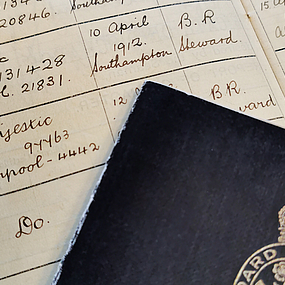 20846.
Southampton
10 April
1912.
Southampton
B. R
Steward.
15
1314-28
21831.
12
B.R.
ward
jestic
97763
rpool - 4442
Do.
OARD